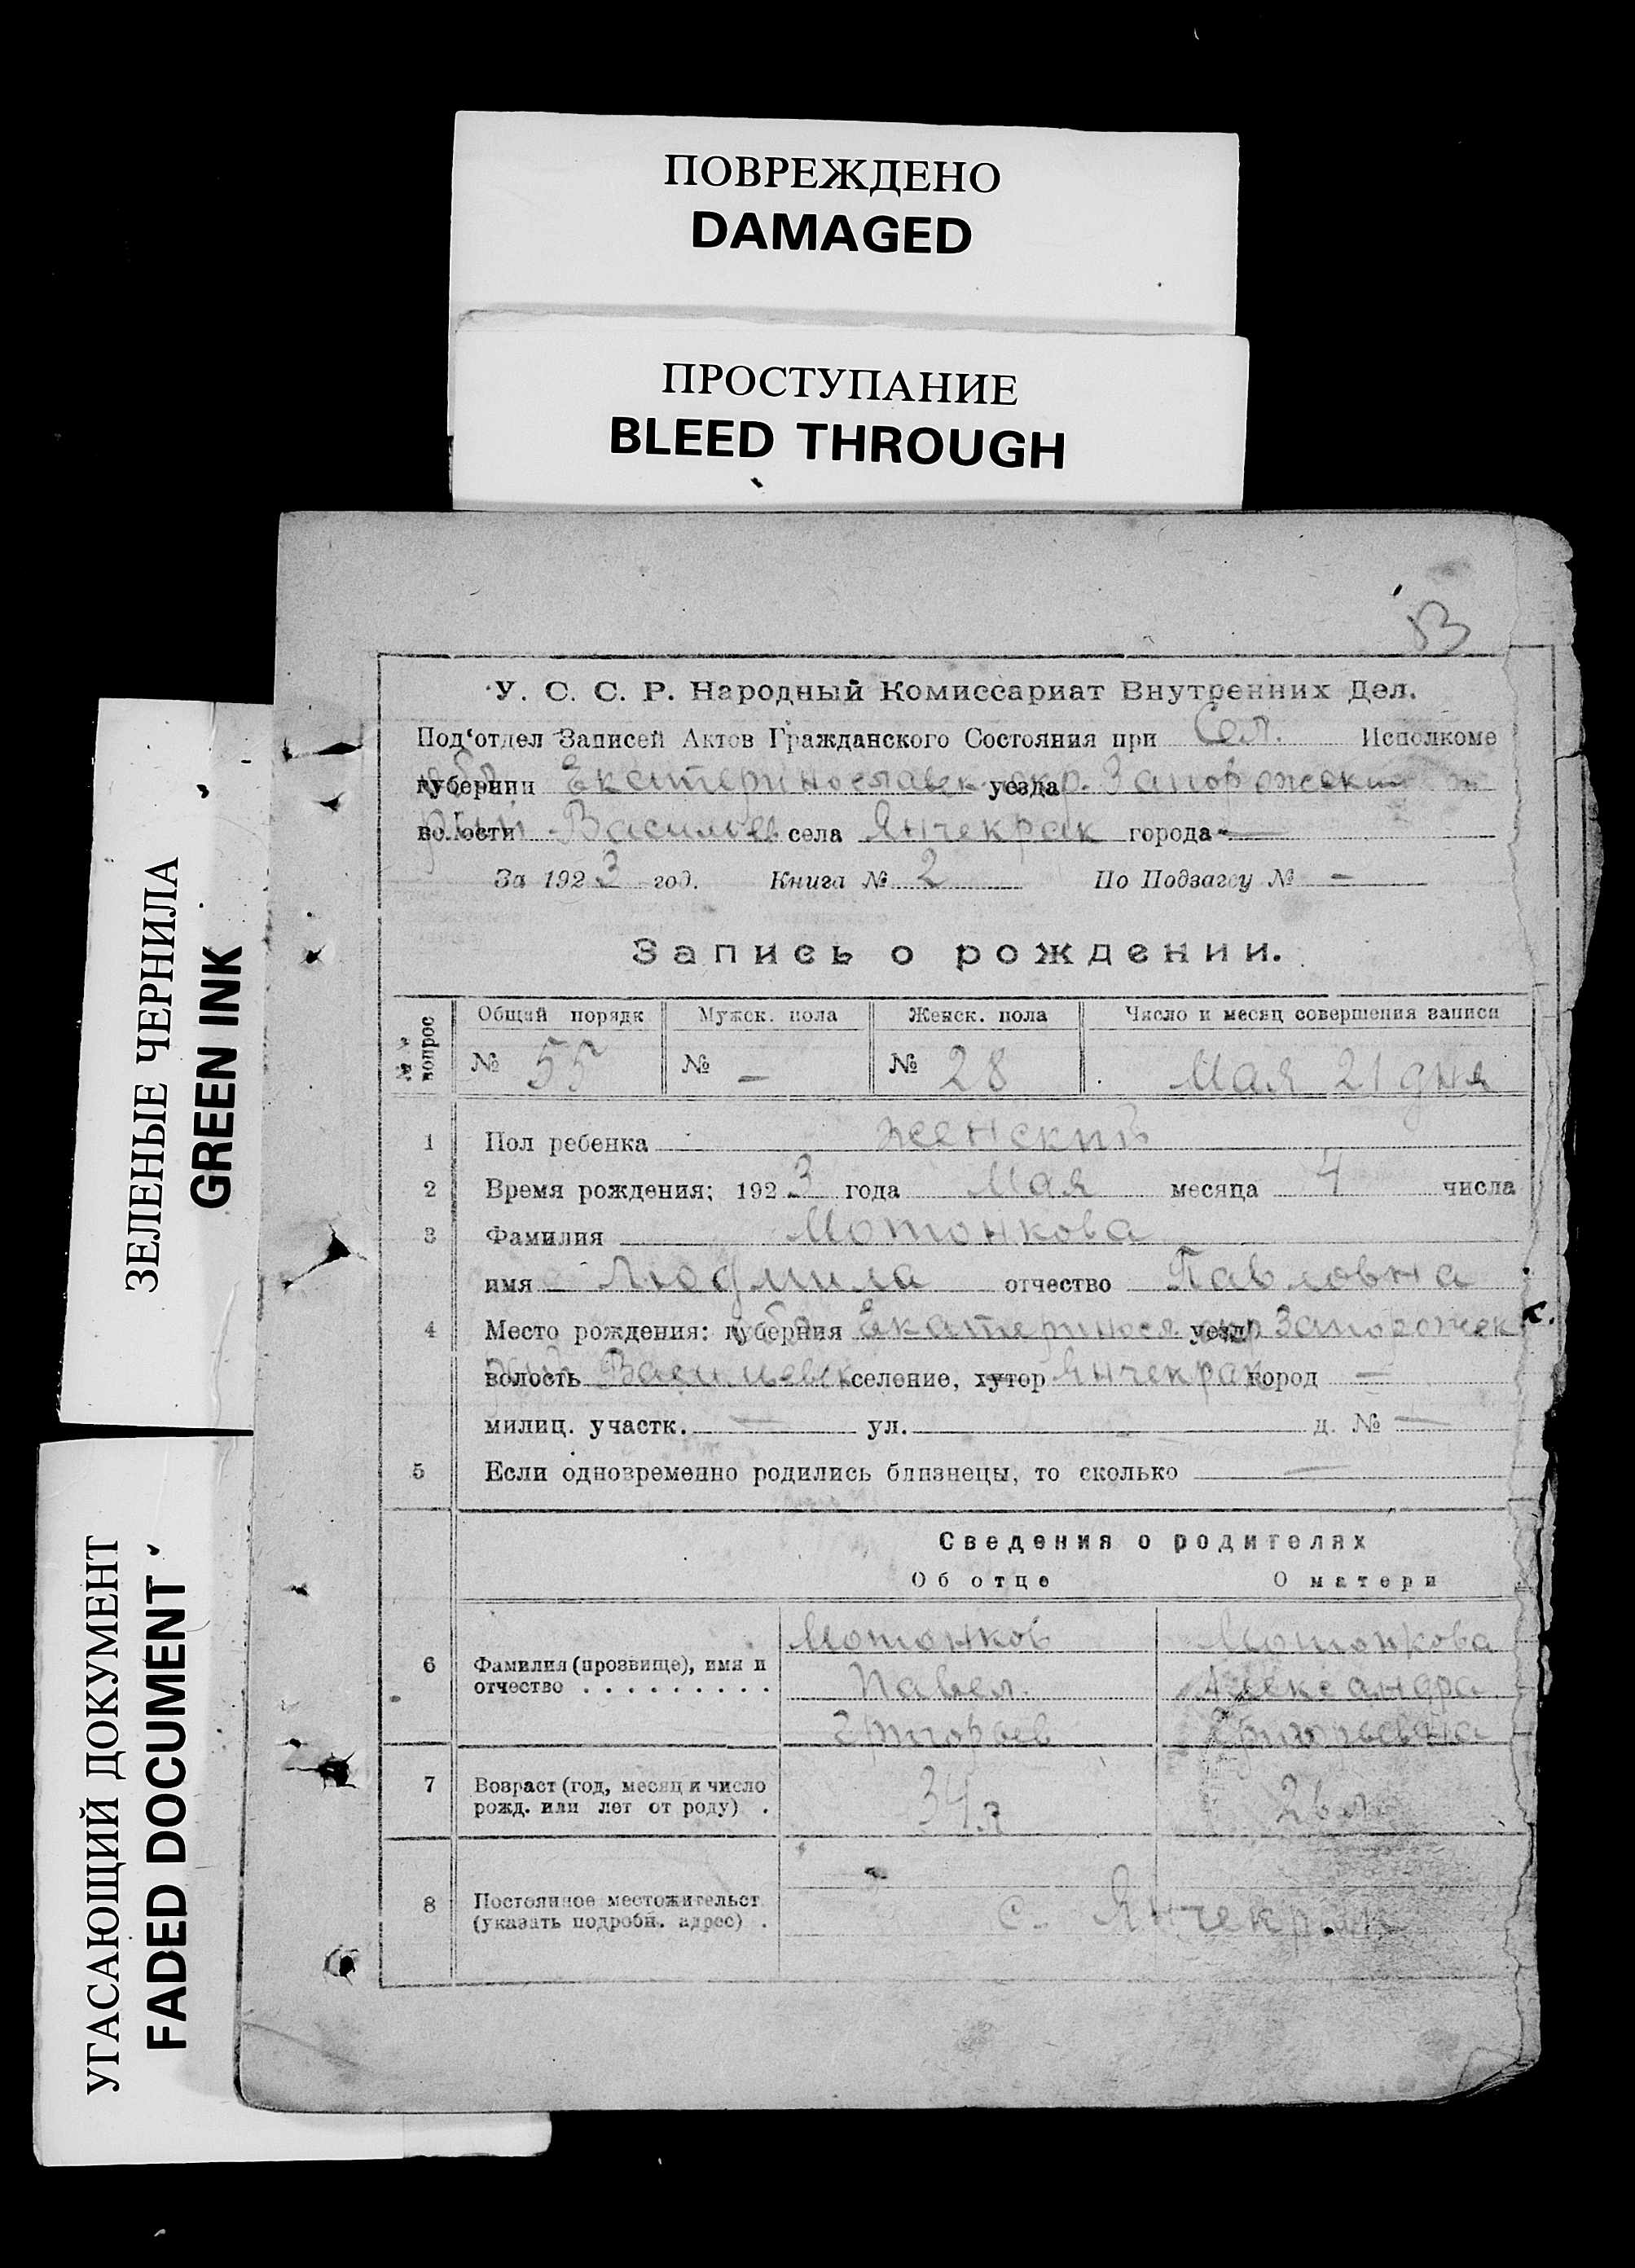 ПОВРЕЖДЕНО
DAMAGED
ПРОСТУПАНИЕ
BLEED THROUGH
ЗЕЛЕНЫЕ ЧЕРНИЛА
GREEN INK
УГАСАЮЩИЙ ДОКУМЕНТ
FADED DOCUMENT
53
У. С. С. Р. Народный Комиссариат Внутренних Дел.
Под'отдел Записей Актов Гражданского Состояния при Сел. Исполкоме
губернии Екатеринославск уезда окр. Запорожский
волости Васильев села Янчекрак города -
За 1923 год. Книга № 2 По Подзагсу № -
Запись о рождении.
№№ вопрос Общий порядк Мужск. пола Женск. пола Число и месяц совершения записи
№ 55 № - № 28 Мая 21 дня
1 Пол ребенка женский
2 Время рождения; 1923 года Мая месяца 4 числа
3 Фамилия Мотонкова
имя Людмила отчество Павловна
4 Место рождения: губерния Екатеринося уезд окр Запорожск
волость Васильевск селение, хутор Янчекрак город -
милиц. участк. - ул. - д. № -
5 Если одновременно родились близнецы, то сколько -
Сведения о родителях
Об отце О матери
Мотонков Мотонкова
6 Фамилия (прозвище), имя и Павел Александра
отчество . . . . . . . . .
Григорьев Григорьевна
7 Возраст (год, месяц и число 34 л 26 л
рожд. или лет от роду) .
8 Постоянное местожительст с. Янчекрак
(указать подробн. адрес) .